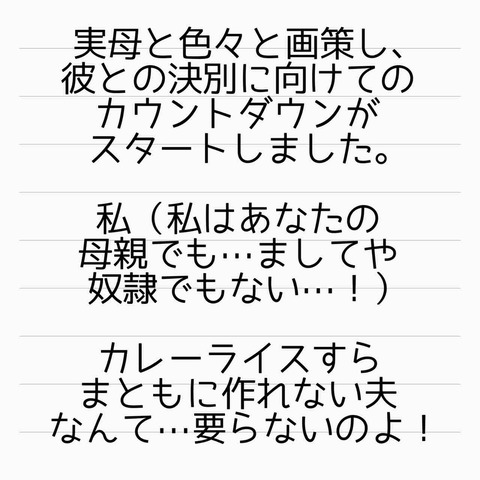 実母と色々と画策し、
彼との決別に向けての
カウントダウンが
スタートしました。
私（私はあなたの
母親でも…ましてや
奴隷でもない…！）
カレーライスすら
まともに作れない夫
なんて…要らないのよ！